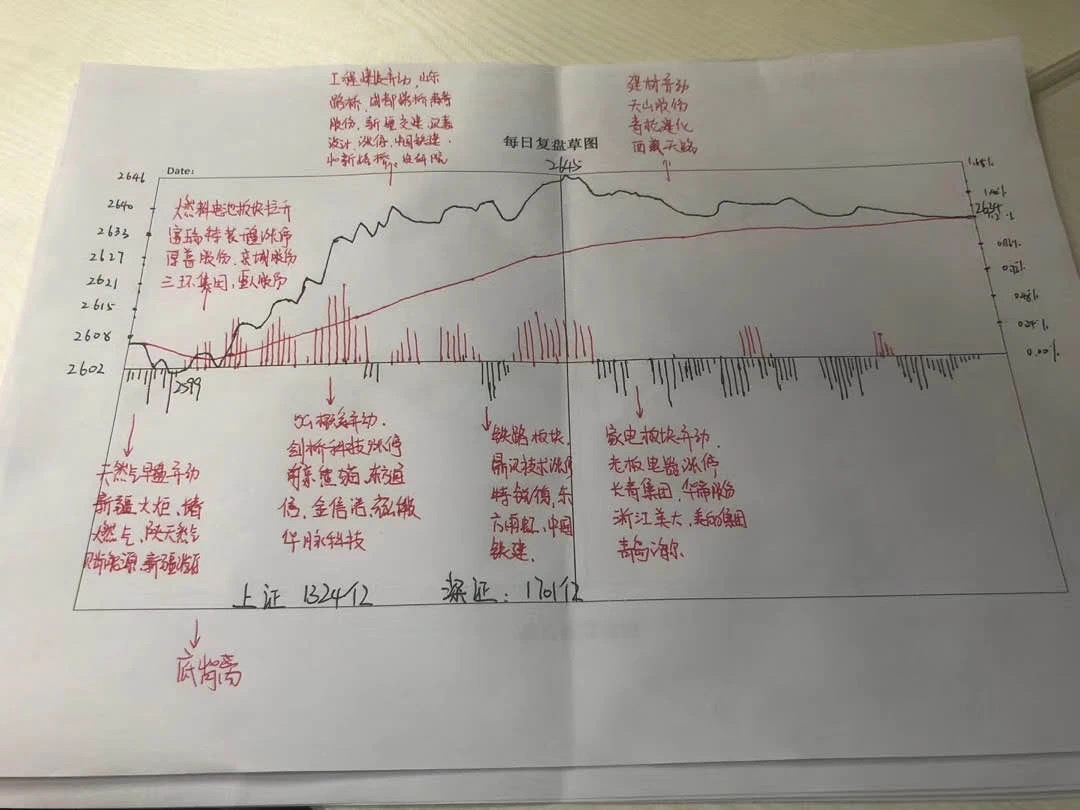 每日复盘草图
Date:
2645
工程建筑异动,山东
路桥,成都路桥
股份,新疆交建,汉嘉
设计,涨停,中国铁建,
建材异动
天山股份
青松建化
西藏天路
2646
2640
2633
2627
2621
2615
2608
2602
2599
燃料电池板块拉升
富瑞特装 涨停
厚普股份、京城股份
三环集团、雪人股份
1.65%
2635
0.24%
0.00%
天然气早盘异动
新疆火炬、
燃气、陕天然气
能源、新疆浩源
5G概念异动.
剑桥科技涨停
南京熊猫、东方通
信、金信诺、
华脉科技
铁路板块、
鼎汉技术涨停
特锐德、东
方雨虹、中国
铁建、
家电板块异动、
老板电器涨停
长青集团、华帝股份
浙江美大、美的集团
青岛海尔、
上证 1324亿
深证: 1701亿
底背离